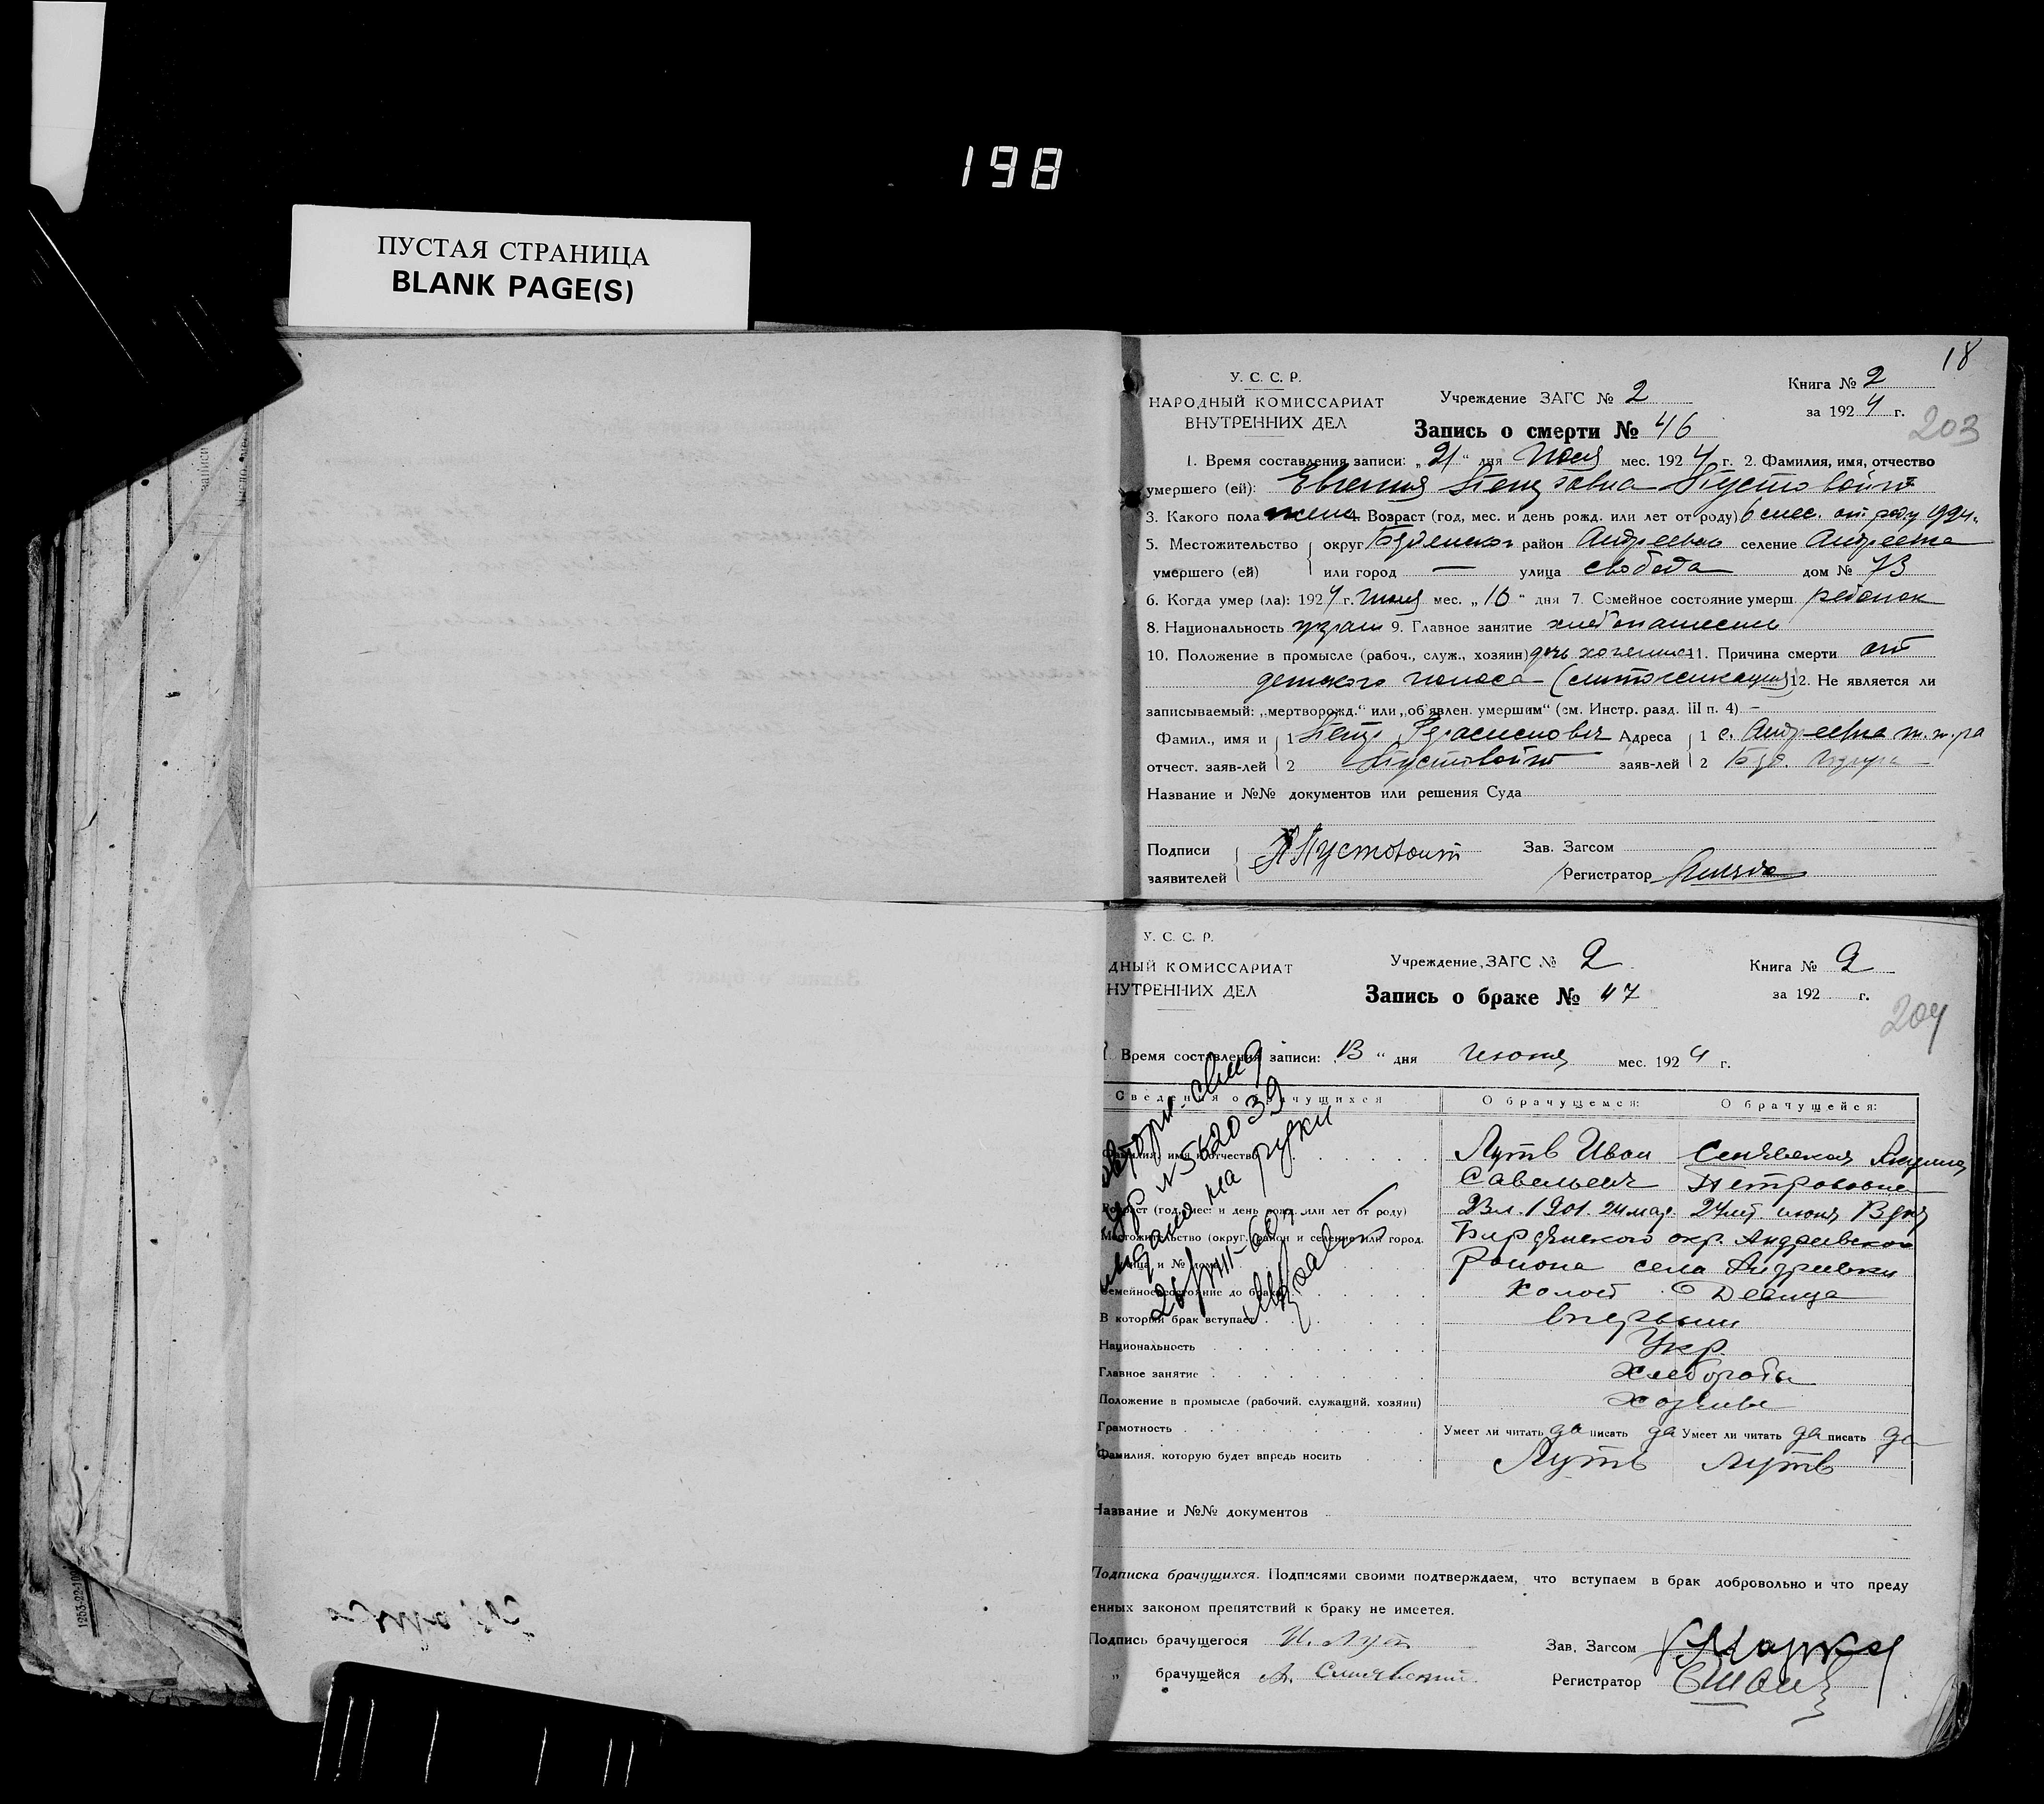 198
ПУСТАЯ СТРАНИЦА
BLANK PAGE(S)
18
У. С. С. Р.
НАРОДНЫЙ КОМИССАРИАТ
ВНУТРЕННИХ ДЕЛ
Учреждение ЗАГС № 2
Книга № 2
за 1924 г.
Запись о смерти № 46
203
1. Время составления записи: „21“ дня Июля мес. 1924 г. 2. Фамилия, имя, отчество
умершего (ей): Евгения Пустовойт
3. Какого пола жен. 4. Возраст (год, мес. и день рожд. или лет от роду) 6 мес. от роду
5. Местожительство округ район Андреевка селение Андреевка
умершего (ей) или город — улица свобода дом № 73
6. Когда умер (ла): 1924 г. Июля мес. „16“ дня 7. Семейное состояние умерш. ребенок
8. Национальность 9. Главное занятие хлебопашество
10. Положение в промысле (рабоч., служ., хозяин) дочь 11. Причина смерти от
детского поноса 12. Не является ли
записываемый: „мертворожд.“ или „об'явлен. умершим“ (см. Инстр. разд. III п. 4) –
Фамил., имя и 1 Петр Герасимович Адреса 1 с. Андреевка
отчест. заяв-лей 2 Пустовойт заяв-лей 2
Название и №№ документов или решения Суда
Подписи П Пустовоит Зав. Загсом
заявителей Регистратор
У. С. С. Р.
ДНЫЙ КОМИССАРИАТ
НУТРЕННИХ ДЕЛ
Учреждение ЗАГС № 2
Книга № 2
Запись о браке № 47
за 192 г.
204
1. Время составления записи: 13 “ дня июня мес. 1924 г.
Сведения о брачущихся О брачущемся: О брачущейся:
Фамилия, имя и отчество Луть Иван
Савельевич Петровна
Возраст (год, мес. и день рожд. или лет от роду) 23 л. 1901. 24 мар. 24 лет. июня 13 дня
Местожительство (округ, район и селение или город, Бердянского окр. Андреевского
улица и № дома) района села Андреевки
Семейное состояние до брака Холост Девица
В который брак вступает впервые
Национальность Укр.
Главное занятие хлеборобы
Положение в промысле (рабочий, служащий, хозяин) хозяева
Грамотность Умеет ли читать да писать да Умеет ли читать да писать да
Фамилия, которую будет впредь носить Луть Луть
повторн. свид
№ 562039
выдано на руки
26/VIII-60 г
Название и №№ документов
Подписка брачущихся. Подписями своими подтверждаем, что вступаем в брак добровольно и что преду
енных законом препятствий к браку не имеется.
Подпись брачущегося И. Луть Зав. Загсом
„ брачущейся А. Регистратор